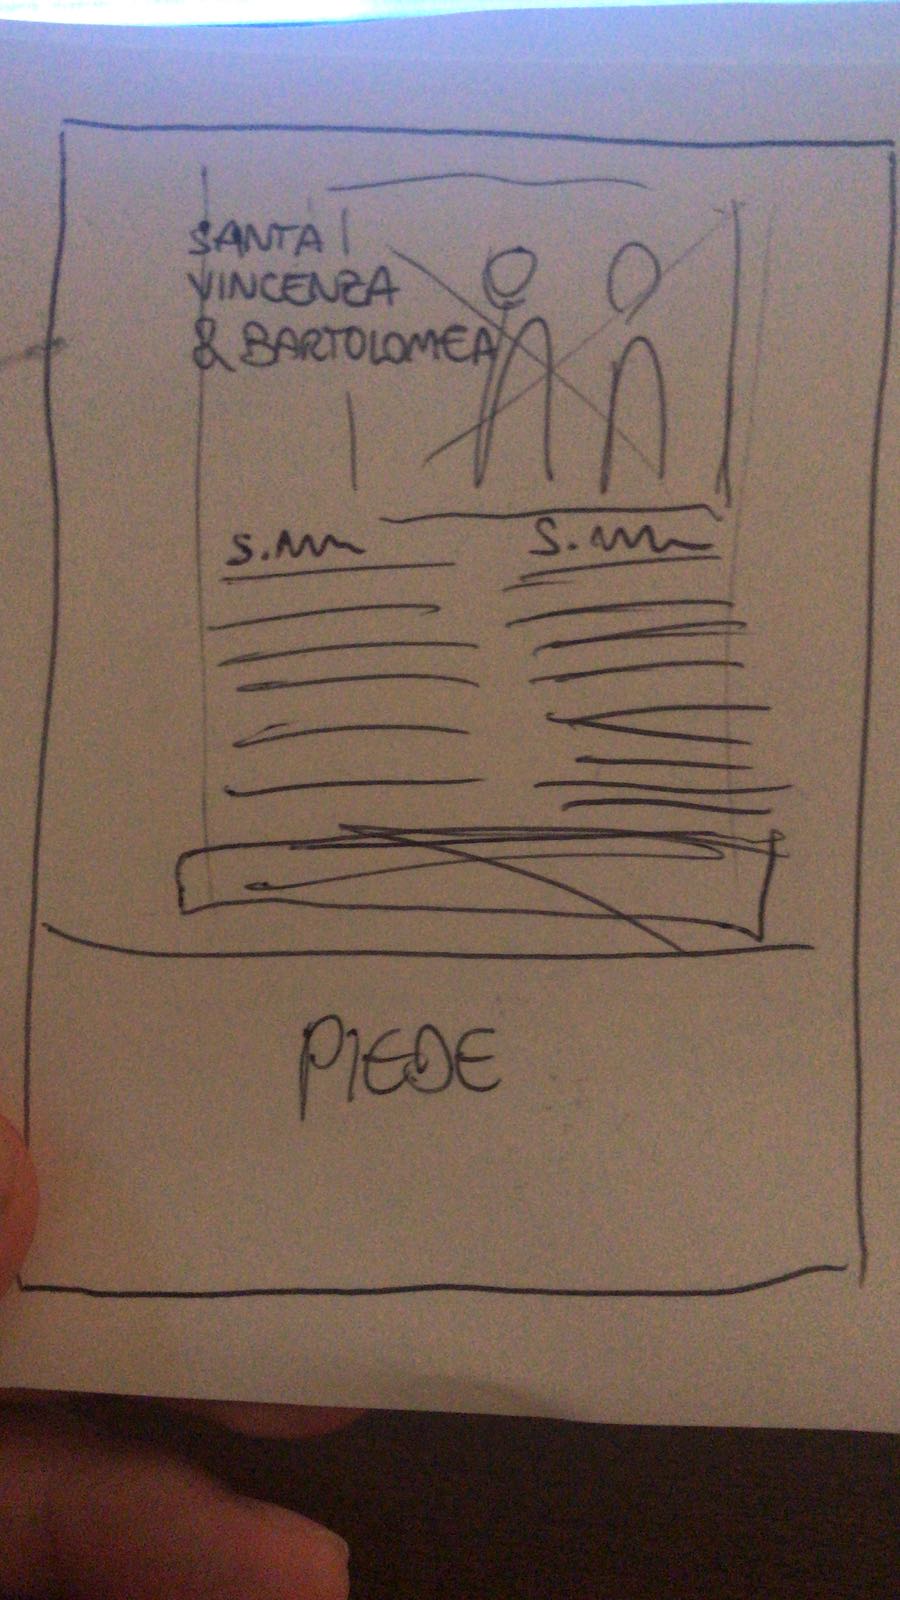 SANTA
VINCENZA
& BARTOLOMEA
S.
S.
PIEDE